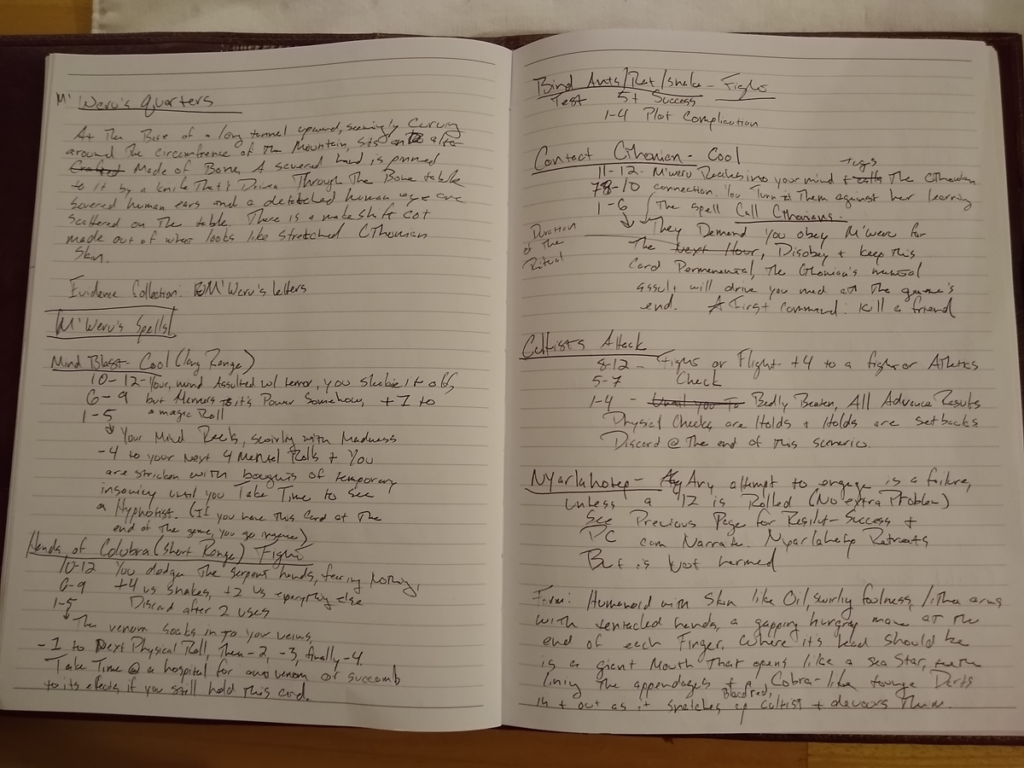 M'Weru's quarters
At The Base of a long tunnel upward, seemingly Curving
around The circumfrence of The Mountain, sits an
Made of Bone. A severed hand is pinned
to it by a knife That's Driven Through The Bone table
severed human ears and a detatched human eye are
scattered on The table. There is a makeshift cot
made out of what looks like stretched Cthonian
Skin.
Evidence Collection: M'Weru's letters
M'Weru's Spells
Mind Blast - Cool (Long Range)
10-12 - Your mind Assulted w/ terror, you shake it off,
6-9 but Harness it's Power Somehow, +1 to
1-5 a magic Roll
↓ Your Mind Reels, swirling with Madness
-4 to your Next 4 Mental Rolls + You
are stricken with of temporary
insanity until you Take Time to See
a Hypnotist. (If you have This Card at The
end of The game, you go insane)
Hands of Colubra (Short Range) Fight
10-12 You dodge The serpent hands, fearing Nothing,
6-9 +4 vs snakes, +2 vs everything else
1-5 Discard after 2 uses
↓ The venom soaks in to your veins
-1 to Next Physical Roll, Then -2, -3, finally -4.
Take Time @ a hospital for venom or succomb
to its effects if you still hold This card.
Bind Ants/Rat/Snake - Fight
Test 5+ Success
1-4 Plot Complication
Contact Cthonian - Cool
11-12 - M'weru Reaches into your mind The Cthonian
78-10 connection. You Turn Them against her learning
1-6 The spell Call Cthonians.
↓ They Demand you obey M'weru for
Duration of The Ritual
The Next Hour, Disobey + keep This
Card Permenental, The Cthonian's mental
assult will drive you mad at The game's
end. A First command: Kill a friend
Cultists Attack
8-12 - Fight or Flight +4 to a fight or Athletics
5-7 Check
1-4 - Until you To Badly Beaten, All Advance Results
Physical Checks are Holds + Holds are setbacks
Discard @ The end of This scenario.
Nyarlahotep - Any attempt to engage is a failure,
unless a 12 is Rolled (No extra Problem)
See Previous Page for Result - Success +
PC can Narrate. Nyarlahotep Retreats
But is Not harmed
Form: Humanoid with Skin like Oil, swirly foulness, lithe arms
with tentacled hands, a gapping hungry maw at The
end of each Finger. Where it's head should be
is a giant Mouth That opens like a sea Star,
lining The appendages + a Blood red, Cobra-like tounge Darts
in + out as it snatches up Cultist + devours Them.